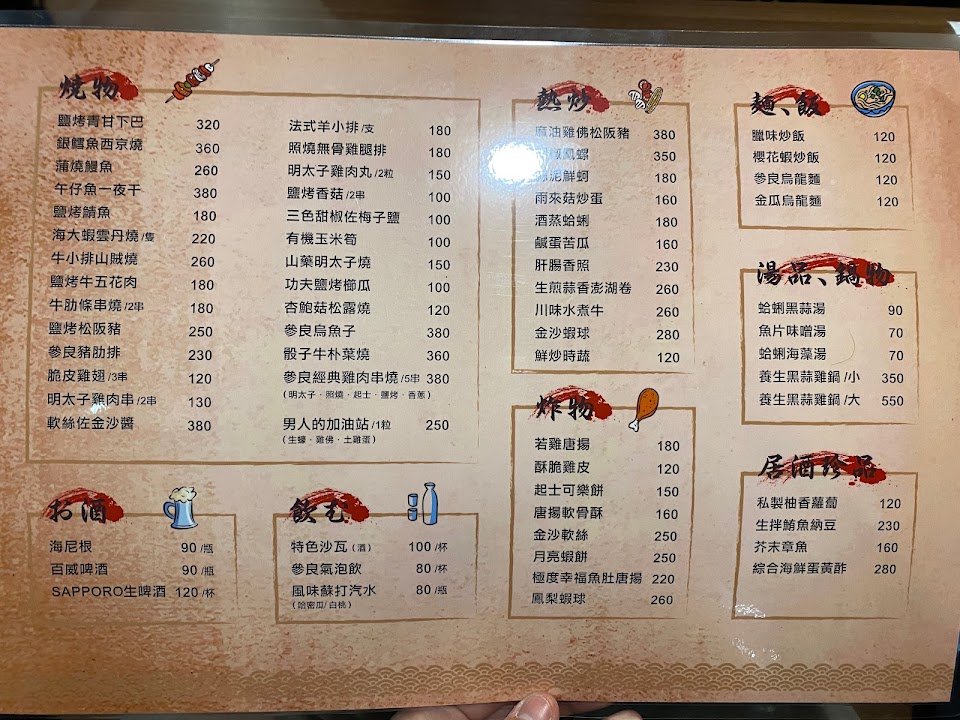 燒物
鹽烤青甘下巴 320
銀鱈魚西京燒 360
蒲燒鰻魚 260
午仔魚一夜干 380
鹽烤鯖魚 180
海大蝦雲丹燒/隻 220
牛小排山賊燒 260
鹽烤牛五花肉 180
牛肋條串燒/2串 180
鹽烤松阪豬 250
參良豬肋排 230
脆皮雞翅/3串 120
明太子雞肉串/2串 130
軟絲佐金沙醬 380
法式羊小排/支 180
照燒無骨雞腿排 180
明太子雞肉丸/2粒 150
鹽烤香菇/2串 100
三色甜椒佐梅子鹽 100
有機玉米筍 100
山藥明太子燒 150
功夫鹽烤櫛瓜 100
杏鮑菇松露燒 120
參良烏魚子 380
骰子牛朴葉燒 360
參良經典雞肉串燒/5串 380
(明太子·照燒·起士·鹽烤·香蔥)
男人的加油站/1粒 250
(生蠔·雞佛·土雞蛋)
お酒
海尼根 90/瓶
百威啤酒 90/瓶
SAPPORO生啤酒 120/杯
飲む
特色沙瓦(酒) 100/杯
參良氣泡飲 80/杯
風味蘇打汽水 80/瓶
(哈密瓜/白桃)
熱炒
麻油雞佛松阪豬 380
鳳螺 350
泥鮮蚵 180
雨來菇炒蛋 160
酒蒸蛤蜊 180
鹹蛋苦瓜 160
肝腸香照 230
生煎蒜香澎湖卷 260
川味水煮牛 260
金沙蝦球 280
鮮炒時蔬 120
炸物
若雞唐揚 180
酥脆雞皮 120
起士可樂餅 150
唐揚軟骨酥 160
金沙軟絲 250
月亮蝦餅 250
極度幸福魚肚唐揚 220
鳳梨蝦球 260
麵、飯
臘味炒飯 120
櫻花蝦炒飯 120
參良烏龍麵 120
金瓜烏龍麵 120
湯品、鍋物
蛤蜊黑蒜湯 90
魚片味噌湯 70
蛤蜊海藻湯 70
養生黑蒜雞鍋/小 350
養生黑蒜雞鍋/大 550
居酒珍品
私製柚香蘿蔔 120
生拌鮪魚納豆 230
芥末章魚 160
綜合海鮮蛋黃酢 280